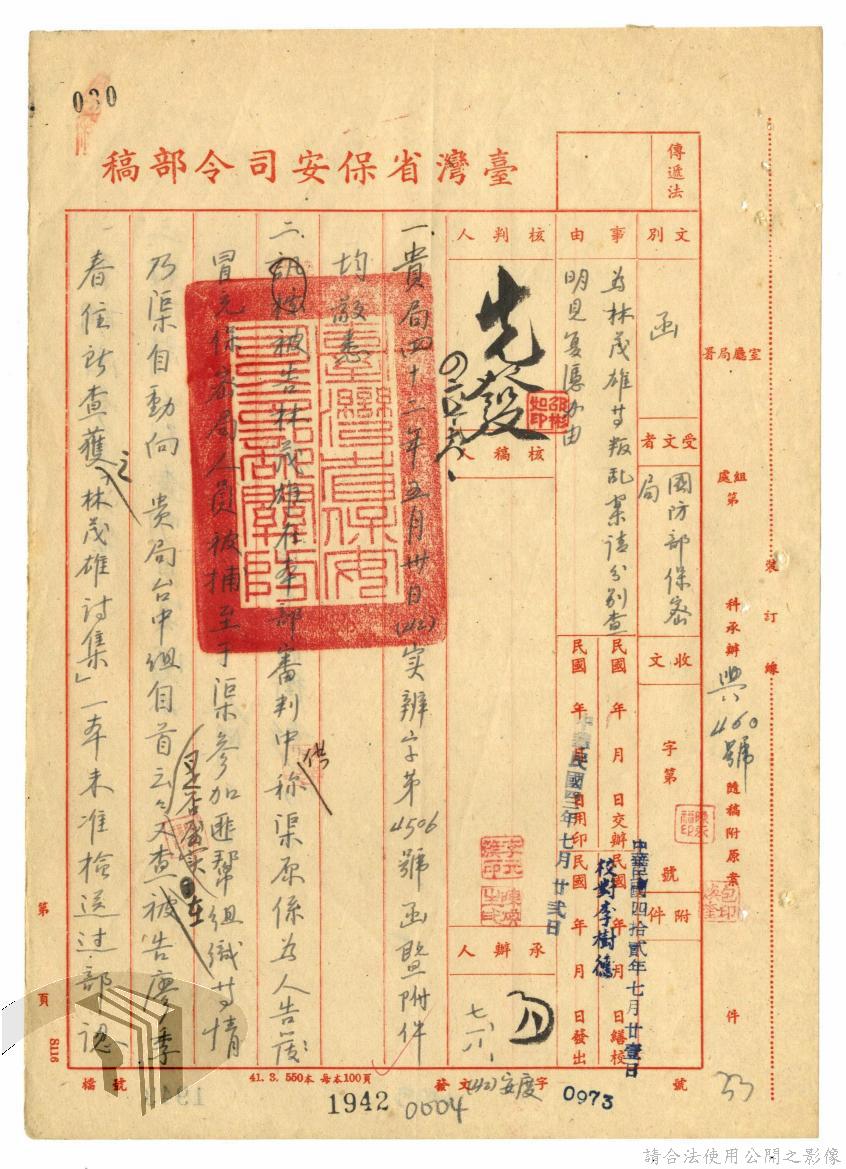 030
臺灣省保安司令部稿
傳遞法
文別
函
受文者
國防部保密局
事由
為林茂雄等叛亂案請分別查明見复憑办由
核判人
先發
核稿人
承辦人
收文
字第
號
附件
民國 年 月 日交辦
民國 年 月 日繕校
民國 年 月 日用印
民國 年 月 日發出
中華民國四拾貳年七月廿壹日
校對李樹德
七月廿貳日
署局廳室
處第 組
科承辦
隨稿附原案
件
號
裝訂線
興460號
一.貴局四十二年五月卅日(42)实辦字第4506號函暨附件
均敬悉
二.訊據被告林茂雄在本部審判中供称渠原係為人告密
冒充保密局人員被捕至于渠參加匪幫組織等情
乃渠自動向 貴局台中組自首云々是否屬实又查被告廖季
春住所查獲之「林茂雄詩集」一本未准檢送过部認
臺灣省保安司令部關防
第 頁
8116
檔號
41. 3. 550本 每本100頁
發文
(42)安度
字
0973
1942
0004
33
請合法使用公開之影像